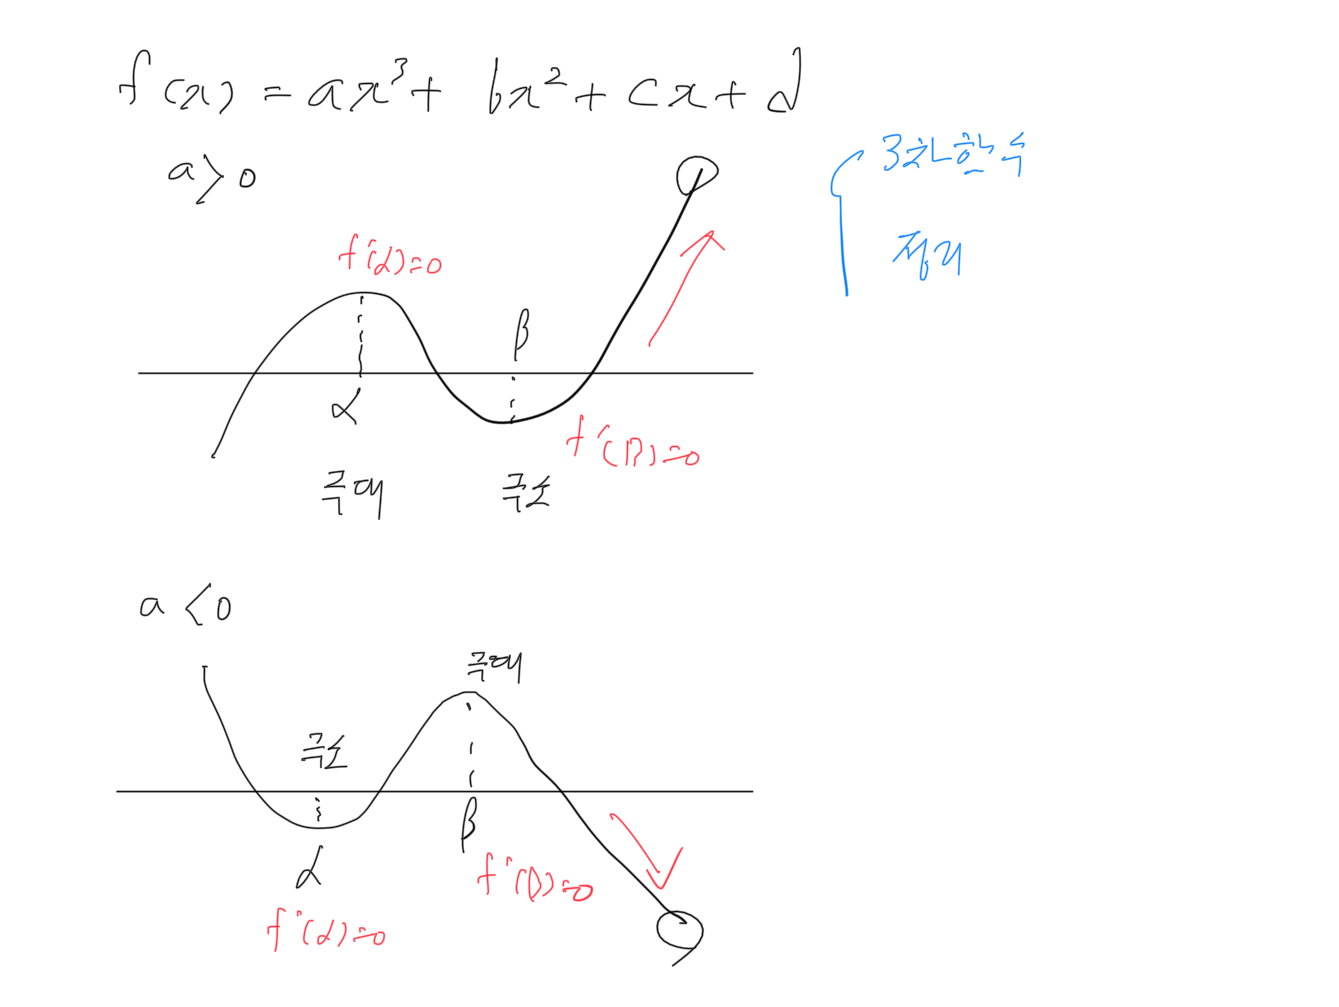 f(x) = ax³ + bx² + cx + d
a > 0
3차함수
정리
f'(α)=0
β
α
f'(β)=0
극대
극소
a < 0
극대
극소
β
α
f'(β)=0
f'(α)=0